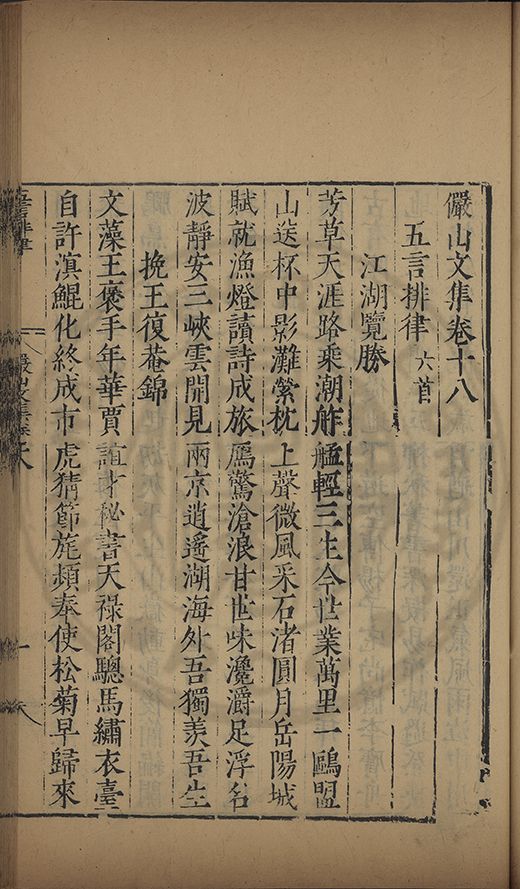 儼山文集卷十八
五言排律 六首
江湖覽勝
芳草天涯路乘潮舴艋輕三生今世業萬里一鷗盟
山送杯中影灘縈枕上聲微風采石渚圓月岳陽城
賦就漁燈讀詩成旅鴈驚滄浪甘世味瀺灂足浮名
波靜安三峽雲開見兩京逍遙湖海外吾獨羨吾生
挽王復菴錦
文藻王褒手年華賈誼才秘書天祿閣驄馬繡衣臺
自許滇鯤化終成市虎猜節旄頻奉使松菊早歸來